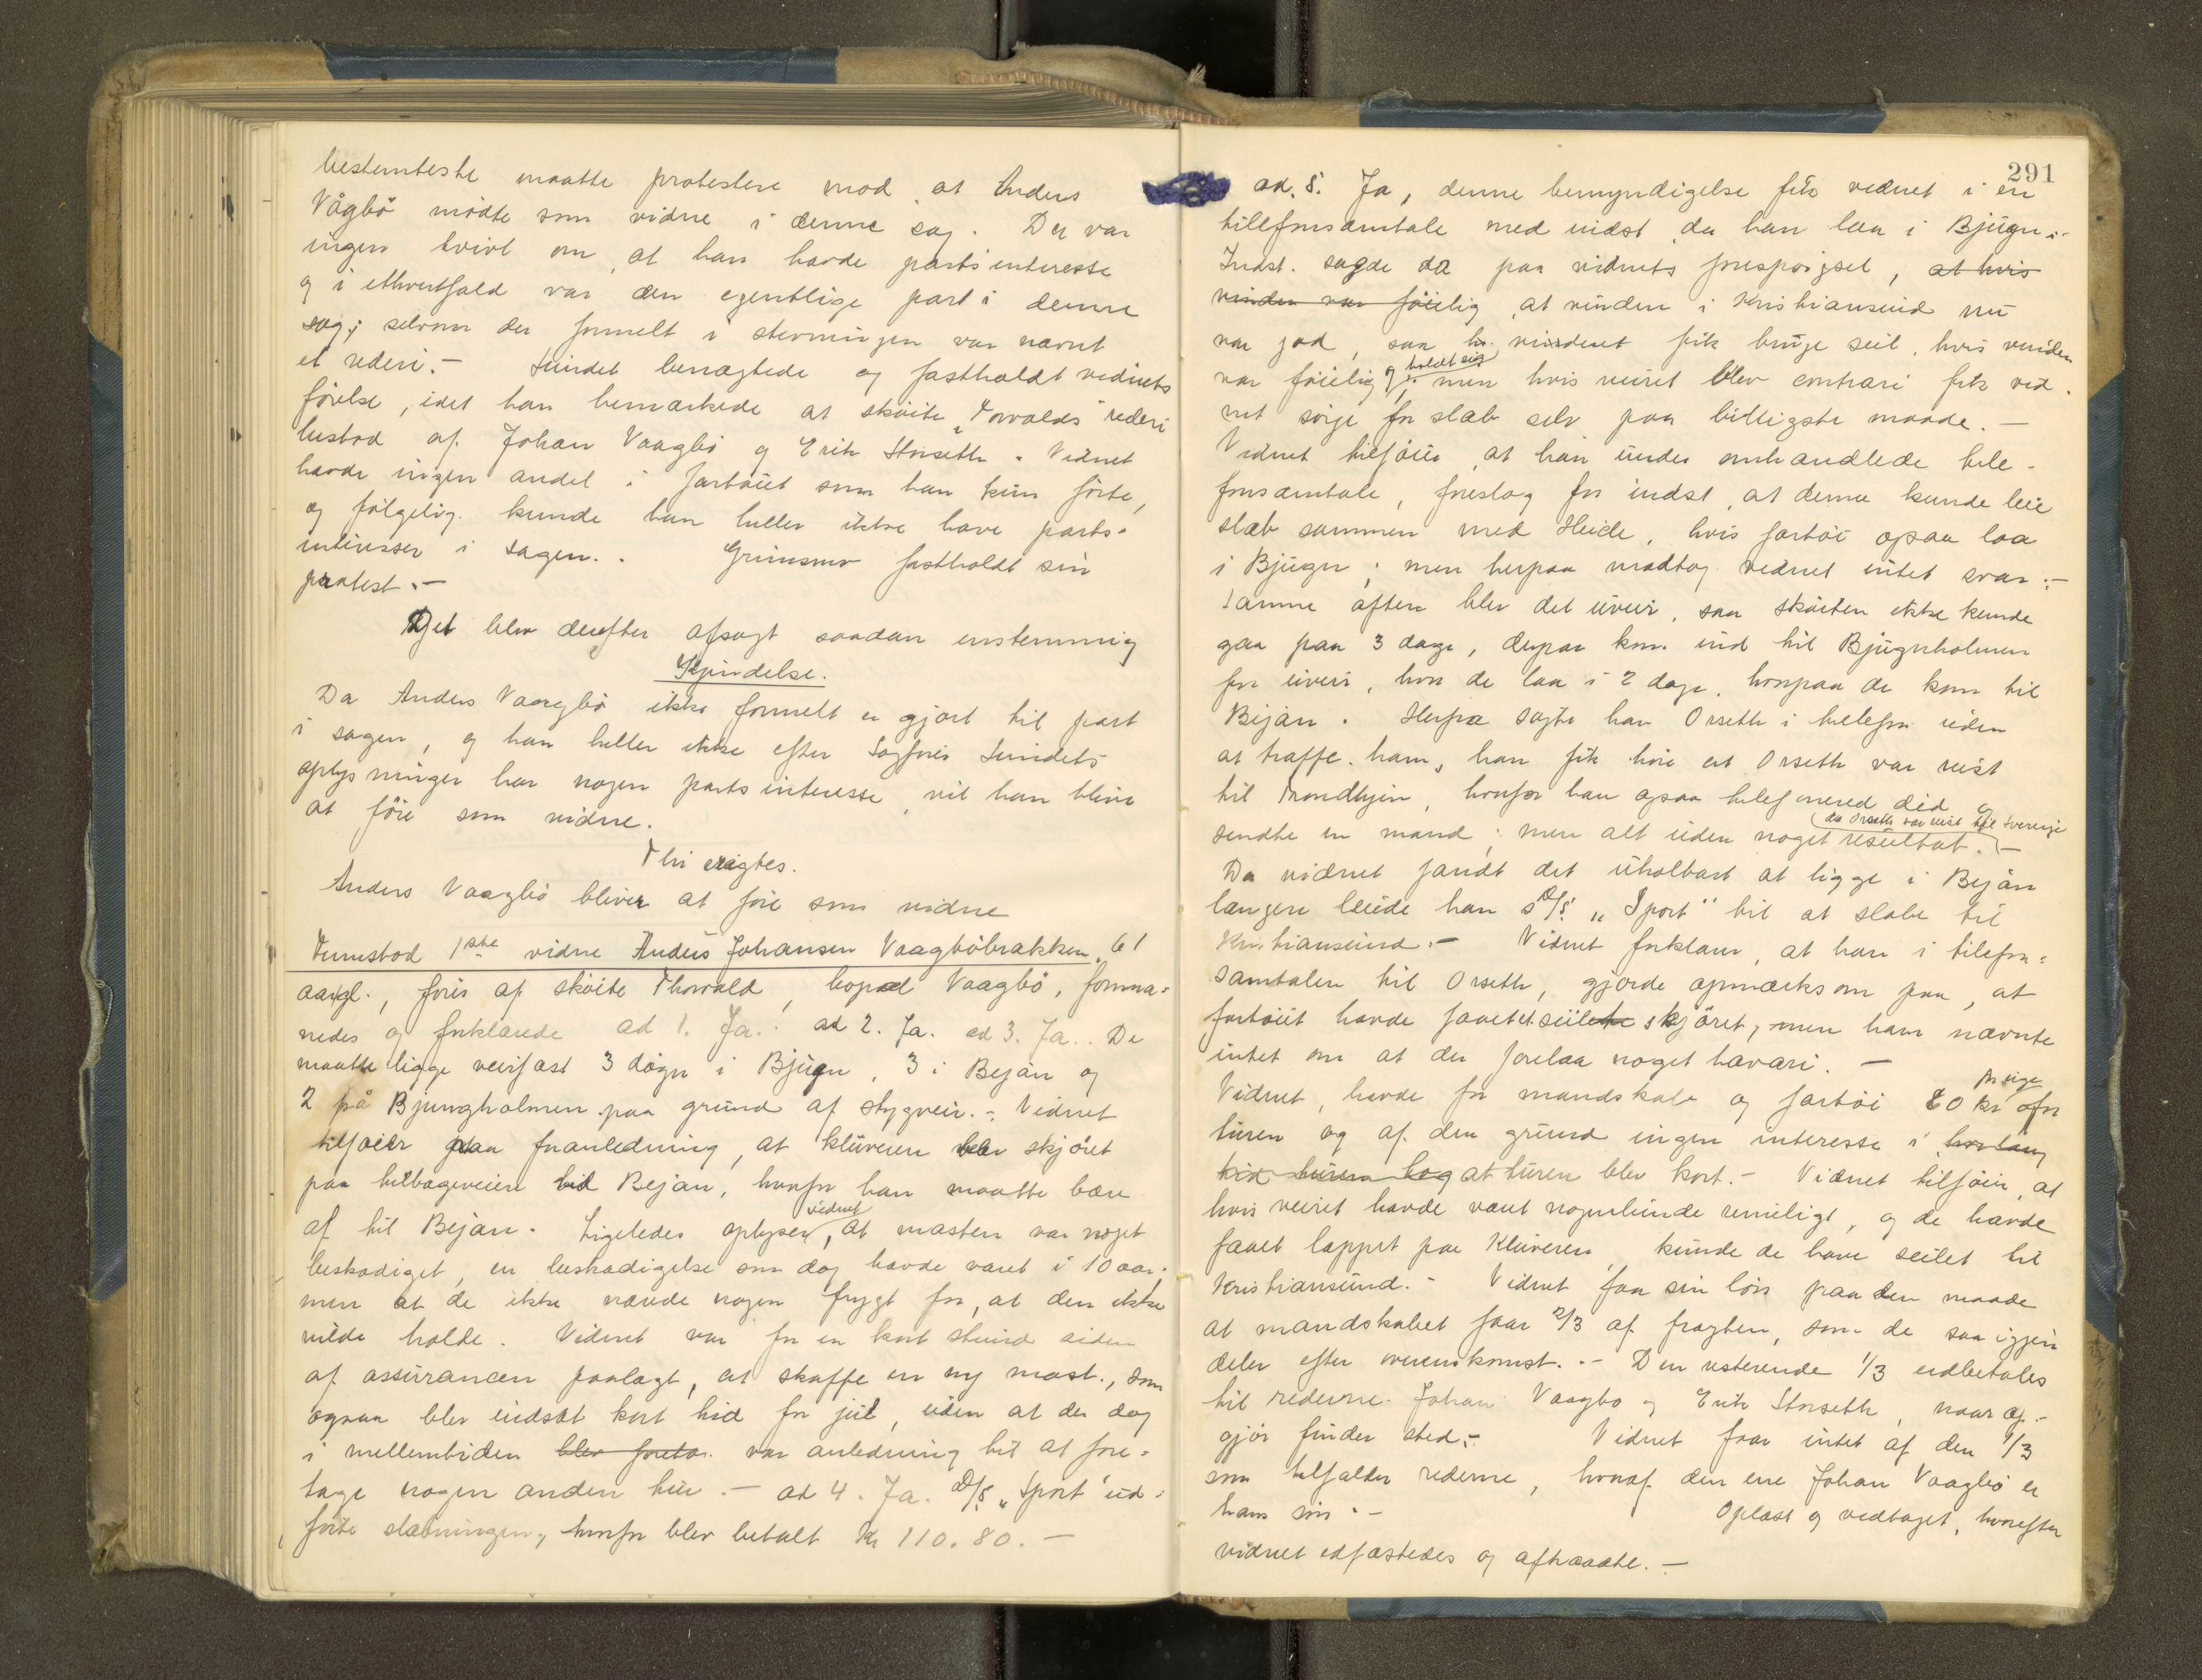 bestemteste maatte protestere mod at Anders
Vågbö mödte som vidne i denne sag. Der var
ingen tvivl om at han havde partsinteresse
og i ethvertfald var den egentlige part i denne
sag; selvom der formelt i stevningen var nævnt
et rederi. – Sundet benægtede og fastholdt vidnets
förelse, idet han bemærkede at sköite "Torvalds" rederi
bestod af Johan Vaagbö og Erik Storseth. Vidnet
havde ingen andel i fartöiet som han kun förte,
og fölgelig kunde han heller ikke have parts-
interesser i sagen. . Grimsmo fastholdt sin
protest. –
Det blev derefter afsagt saadan enstemmig
Kjendelse.
Da Anders Vaagbö ikke formelt er gjort til part
i sagen, og han heller ikke efter Sagförer Sundets
oplysninger har nogen partsinteresse, vil han blive
at före som vidne.
Thi eragtes.
Anders Vaagbö bliver at före som vidne
Fremstod 1ste vidne Anders Johansen Vaagböbrakken, 61
aar gl., förer af sköite Thorvald, bopæl Vaagbö, forma-
nedes og forklarede ad 1. Ja. ad 2. Ja. ad 3. Ja.. De
maatte ligge veirfast 3 dögn i Bjugn, 3 i Bejan og
2 på Bjungholmen paa grund af stygveir. – Vidnet
tilföier paa foranledning, at klüveren blev skjöret
paa tilbageveien ved Bejan, hvorfor han maatte bære
af til Bejan. Ligeledes oplyser vidnet, at masten var noget
beskadiget, en beskadigelse som dog havde været i 10 aar.
men at de ikke nærede nogen frygt for, at den ikke
vilde holde. Vidnet var for en kort stund siden
af assurancen paalagt, at skaffe en ny mast., som
ogsaa blev indsat kort tid for jul, uden at der dog
i mellemtiden blev foreta. var anledning til at fore-
tage nogen anden tur. – ad 4. Ja. D/S "Sport" ud-
förte slæbningen, hvorfor blev betalt Kr 110.80. –
291
ad. 5. Ja, denne bemyndigelse fik vidnet i en
tillefonsamtale med indst, da han laa i Bjugn.
Indst. sagde da paa vidnets forespörgsel, at hvis
vinden var föielig, at vinden i Kristiansund nu
var god, saa h. vidnet fik bruge seil, hvis vinden
var föielig og holdt sig, men hvis veiret blev contrari fik vid-
net sörge for slæb selv paa billigste maade. –
Vidnet tilföier, at han under omhandlede tele-
fonsamtale, foreslog for indst, at denne kunde leie
slæb sammen med Heide, hvis fartöi ogsaa laa
i Bjugn; men herpaa modtog vidnet intet svar. –
Samme aften blev det uveir, saa sköiten ikke kunde
gaa paa 3 dage, derpaa kom ind til Bjugnholmen
for uveir, hvor de laa i 2 dage, hvorpaa de kom til
Bejan. Herfra sögte han Orseth i telefon uden
at træffe ham, han fik höre at Orseth var reist
til Trondhjem, hvorfor han ogsaa telefonered did og
sendte en mand; men alt uden noget resultat. (da Orseth var reist til Sverige) –
Da vidnet fandt det uholbart at ligge i Bejan
længere leiede han D/S "Sport" til at slæbe til
Kristiansund. – Vidnet forklarer, at han i telefon-
samtalen til Orseth, gjorde opmærksom paa, at
fartöiet havde faaet et seilete skjöret, men han nævnte
intet om at der forelaa noget havari. –
Vidnet, havde for mandskab og fartöi 80 kr pr uge for
turen og af den grund ingen interesse i hvor lang
tid turen tog at turen blev kort. – Vidnet tilföier, at
hvis veiret havde været nogenlunde rimeligt, og de havde
faaet lappet paa Klüveren, kunde de have seilet til
Kristiansund. – Vidnet faar sin lön paa den maade
at mandskabet faar 2/3 af fragten, som de saa igjen
deler efter overenskomst. – Den resterende 1/3 udbetales
til rederne Johan Vaagbo og Erik Storseth, naar op-
gjör finder sted. – Vidnet faar intet af den 1/3
som tilfalder rederne, hvoraf den ene Johan Vaagbö er
hans sön. – Oplæst og vedtaget, hvorefter
vidnet edfæstedes og aftraadte. –